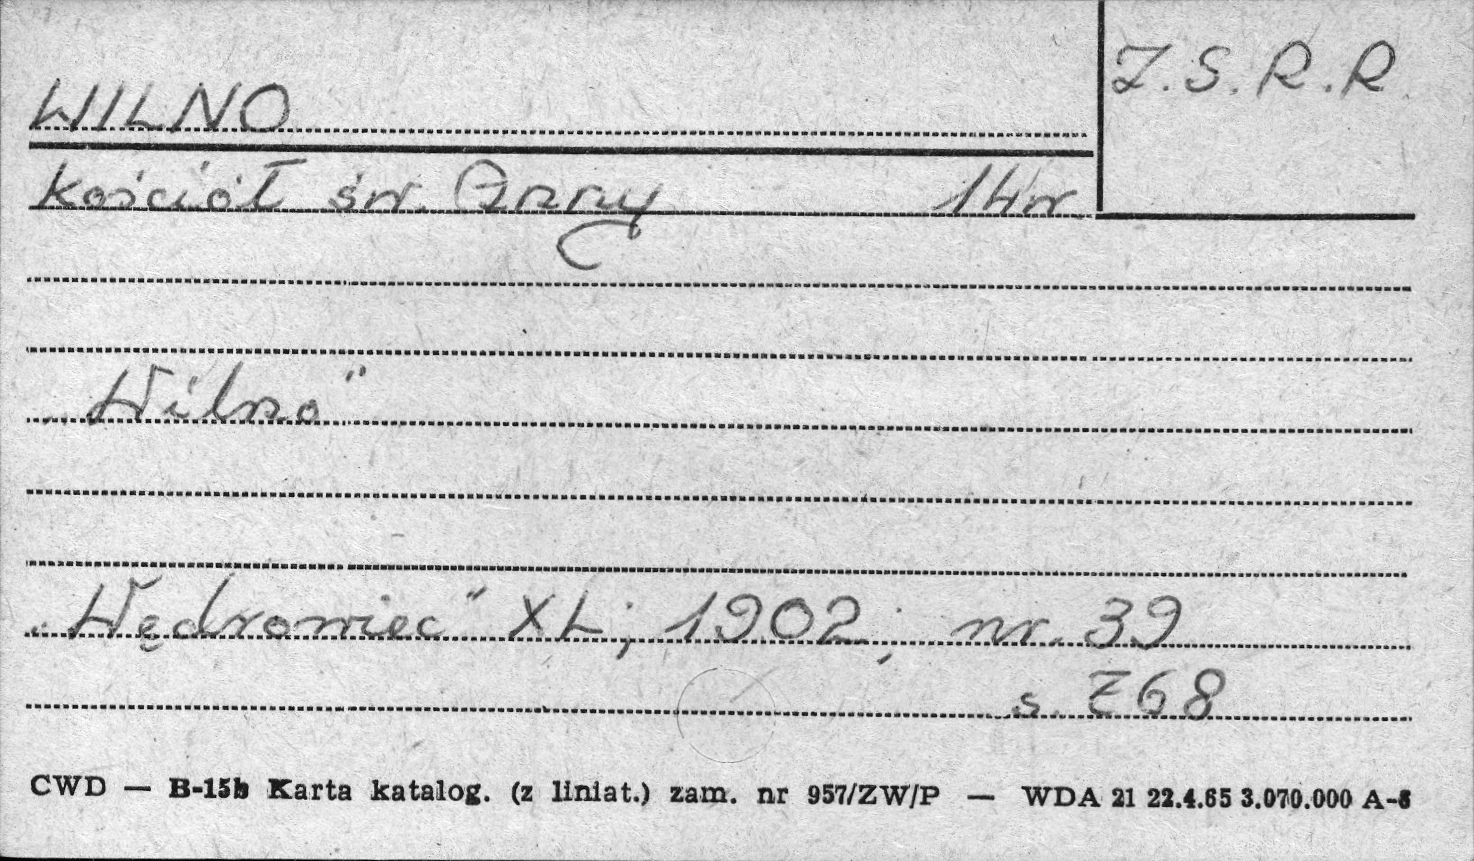 Z.S.R.R.
WILNO
Kościół św. Anny 14 w.
"Wilno"
"Wędrowiec" XL, 1902, nr. 39
s. 768
CWD — B-15b Karta katalog. (z liniat.) zam. nr 957/ZW/P — WDA 21 22.4.65 3.070.000 A-6